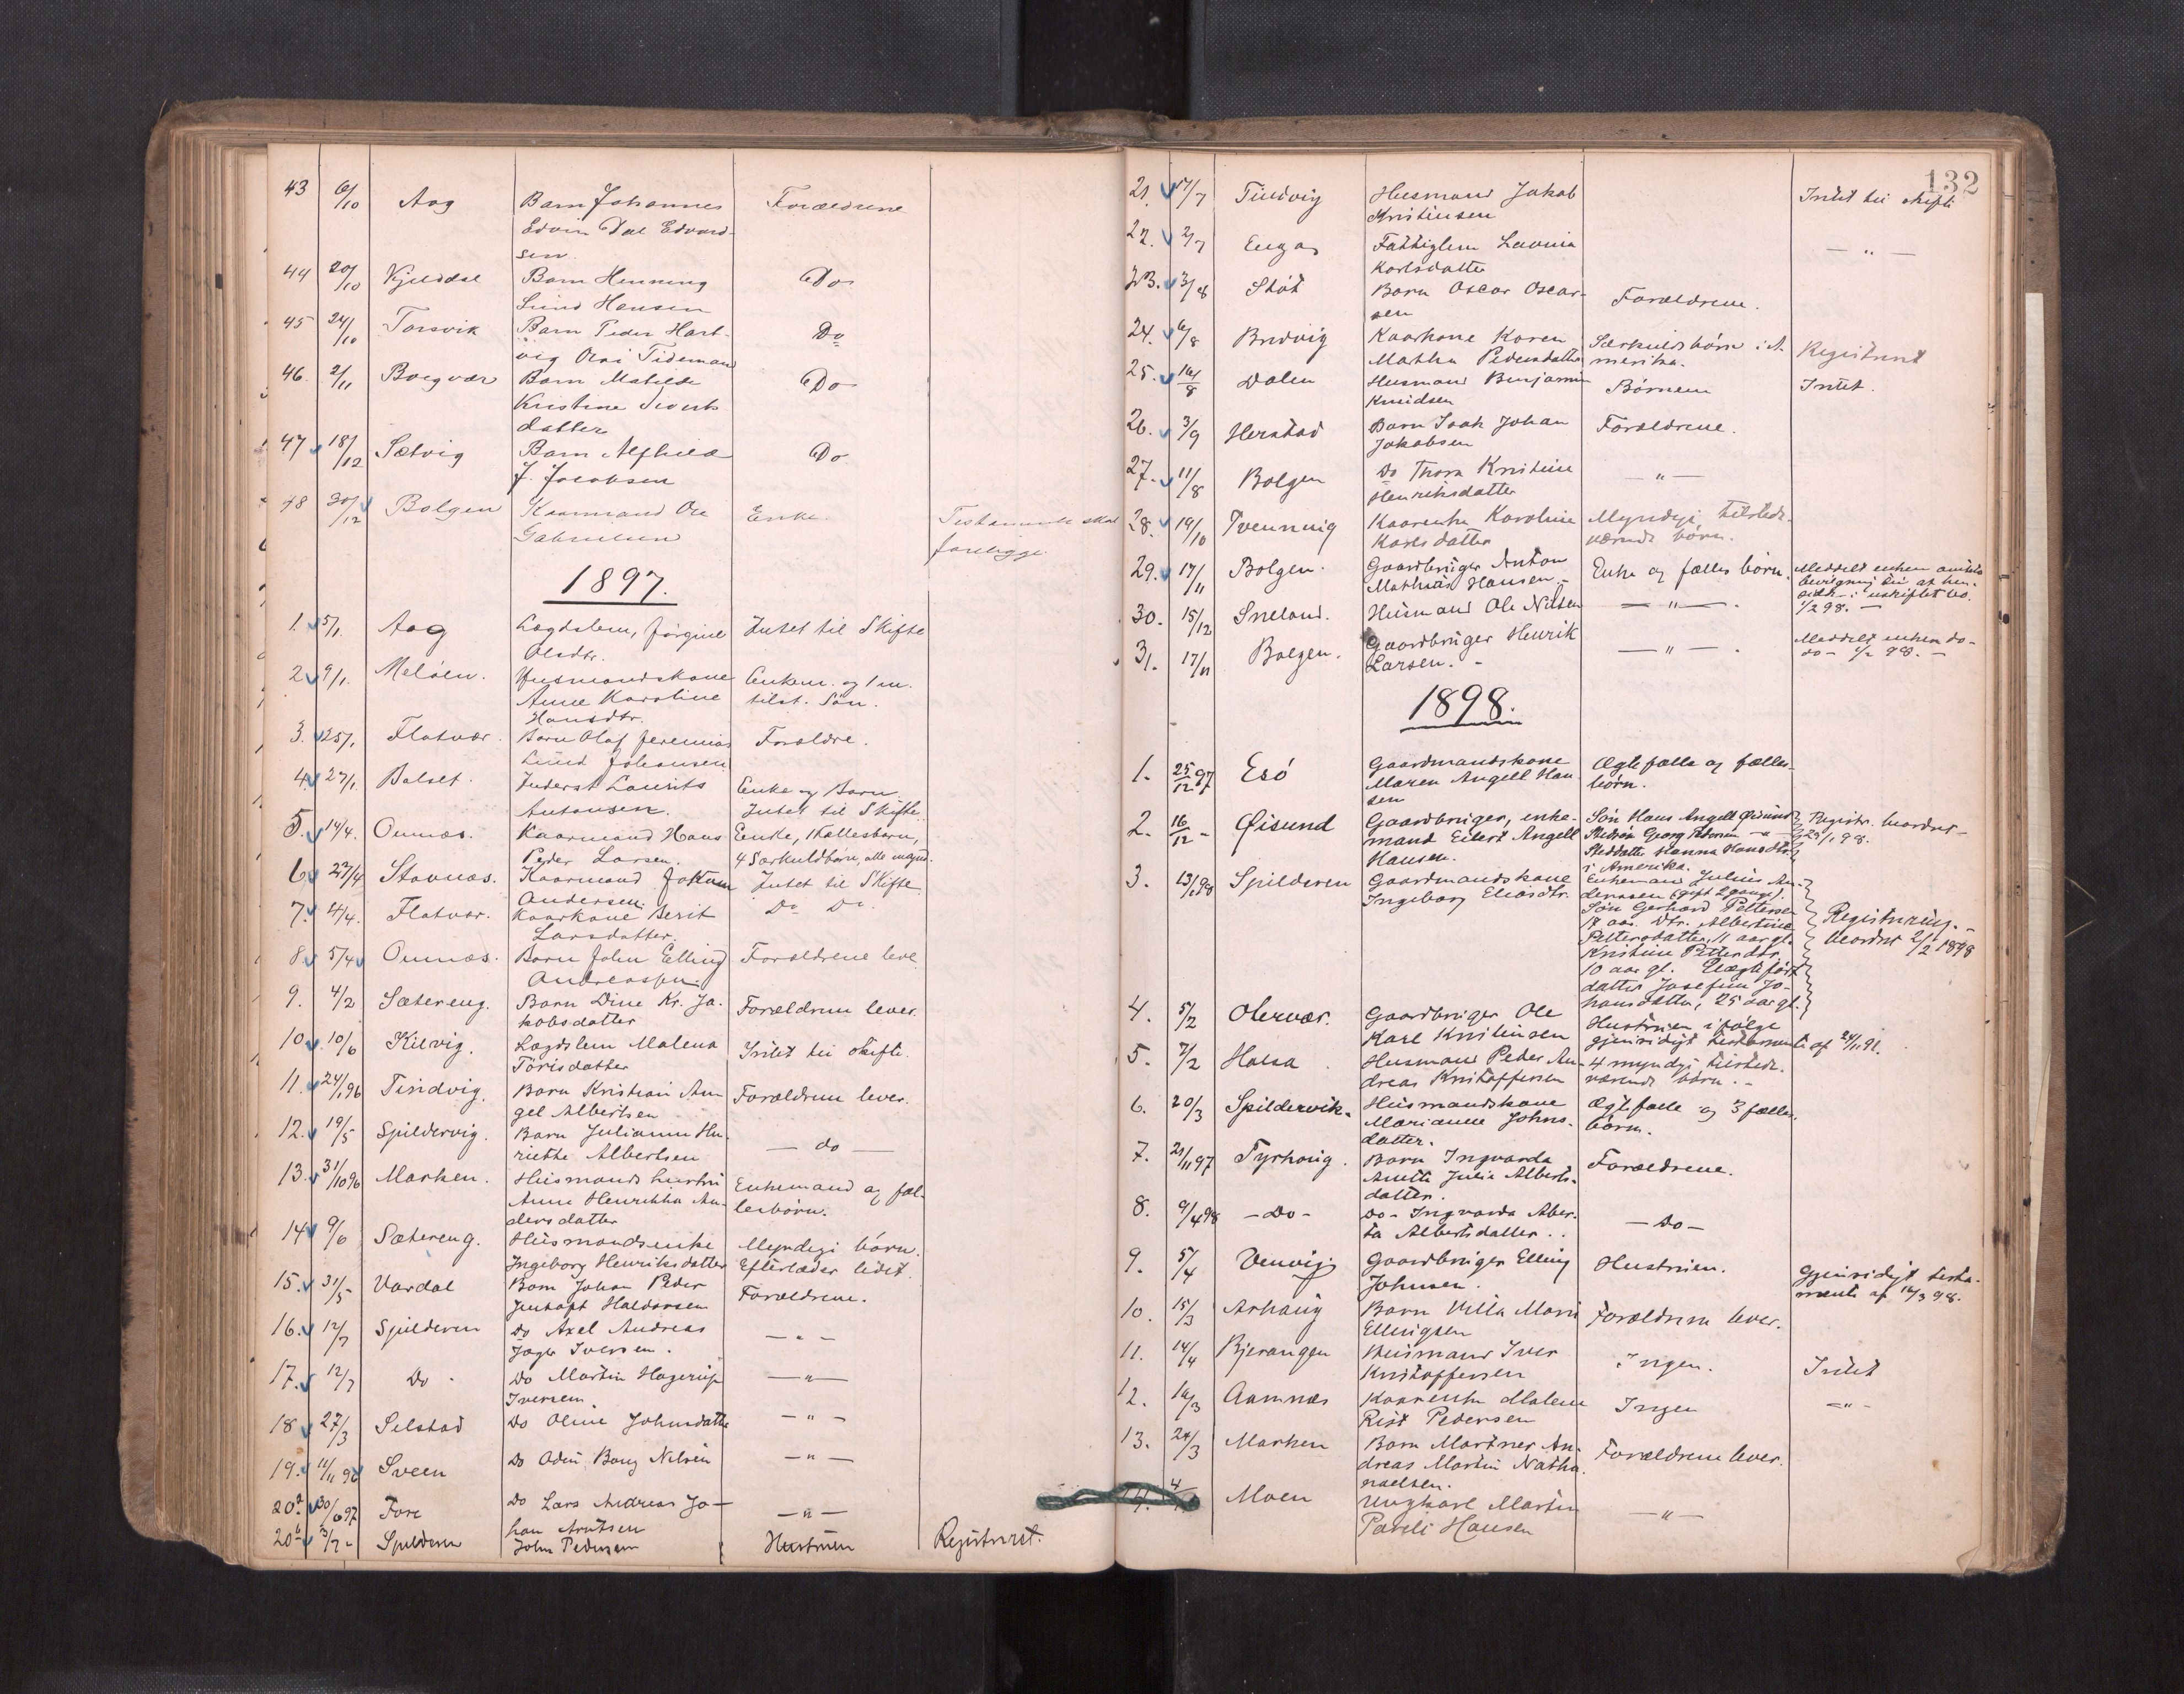 43 6/10 Aag Barn Johannes Forældrene
Edvin Dal Edvard-
sen.
44 20/10 Kjeldal Barn Henning Do
Lund Hansen
45 24/10 Torsvik Barn Peder Hart- Do
vig Tideman
46. 2/11 Bolgvær Barn Matilde Do
Kristine Siverts
datter
47 18/12 Sætvig Barn Alfhild Do
J. Jacobsen
48 30/12 Bolgen Kaarmand Ole Enke. Testamente skal
Gabrielsen foreligge.
1897.
1. 5/1. Aag Lægdslem, Jørgine Intet til Skifte
Olsdtr.
2. 9/1. Meløen. Husmandskone Enkem. og 1 m.
Anne Karoline tilst. Søn.
Hansdtr.
3. 25/1. Flatvær. Barn Olaf Jeremias Forældre.
Lund Johansen
4. 27/1. Balset. Inderst Laurits Enke og Barn
Antonsen. Intet til Skifte
5. 14/4. Ounnæs. Kaarmand Hans Enke, 1 Fællesbarn,
Peder Larsen. 4 Særkuldbørn, alle mynd.
6 27/4 Stavnæs. Kaarmand Intet til Skifte
Andersen.
7. 4/4. Flatvær. Kaarkone Berit Do Do
Larsdatter.
8. 5/4 Ounnæs. Barn John Elling Forældrene leve
Andreassen.
9. 4/2 Sætereng. Barn Dine Kr. Ja- Forældrene lever.
kobsdatter
10. 10/6 Kilvig. Lægdslem Malena Intet til skifte.
Törisdatter
11. 24/1 96 Tindvig. Barn Kristian An- Forældrene lever.
gel Albertsen
12. 19/5 Spildervig. Barn Julianna Hen- — do —
riette Albertsen
13. 31/10 96 Marken. Husmands hustru Enkemand og fæl-
Anne Henrikka An- lesbørn.
dersdatter
14 9/6 Sætereng. Husmandsenke Myndige børn.
Ingeborg Henriksdatter Efterlader lidet.
15. 31/5 Vardal Barn Johan Peder Forældrene.
Haldorsen
16. 12/7 Spilderen Do Axel Andreas — " —
Iversen.
17. 12/7 Do Do Martin Hagerup — " —
Iversen
18 27/3 Selstad Do Oline Johnsdatter — " —
19. 11/11 96 Sveen Do Odin Bang Nilsen — " —
20.a 30/6 97 Fore Do Lars Andreas Jo- — " —
han Arntsen
20 b 3/7 - Spilderen John Pedersen Hustruen Registreret.
132
21. 17/7 Tindvig Husmand Jakob Intet til skifte
Kristensen
22. 2/7 Enga Fattiglem Lavina — " —
Karlsdatter
23. 3/8 Støt Barn Oscar Oscar- Forældrene.
sen
24. 6/8 Bredvig Kaarkone Karen Særkuldsbørn i A- Registreret
Martha Pedersdatter merika.
25. 16/8 Dalen Husmand Benjamin Børnene Intet.
Knudsen
26. 3/9 Herstad Barn Isak Johan Forældrene.
Jakobsen
27. 11/8 Bolgen Do Thora Kristine — " —
Henriksdatter
28. 19/10 Kaarenke Karoline Myndige, tilstede-
Karlsdatter værende børn.
29. 17/11 Bolgen. Gaardbruger Anton Enke og fælles børn. Meddelt enken amtets
Mathias Hansen. - bevilgning til at hen-
sidde i uskiftet bo.
30. 15/12 Sneland. Husmand Ole Nilsen — " —. 1/2 98. —
31. 17/11 Bolgen. Gaardbruger Henrik — " —. Meddelt enken do-
Larsen. - do - 1/2 98. —
1898.
1. 25/12 97 Esö Gaardmandskone Ægtefælle og fælles-
Maren Angell Han- børn.
sen
2. 16/12 - Øisund Gaardbruger, enke- Søn Hans Angell Øisund Registr. beordret
mand Edert Angell Stedsøn Georg Pedersen - " - 23/1 98.
Hansen. Steddatter Hanna Hansdtr.
i Amerika.
3. 13/1 98 Spilderen Gaardmandskone Enkemand Julius An-
Ingeborg Eliasdtr. derssen (gift 2 gange).
Søn Gerhard Pettersen Registrering.-
17 aar. Dtr. Albertine beordret 2/2 1898
Pettersdatter, 11 aar gl.
Kristine Pettersdtr.
10 aar gl. Uægte født
datter Josefine Jo-
hansdatter, 25 aar gl.
4. 5/2 Olervær. Gaardbruger Ole Hustruen ifølge
Karl Kristensen gjensidigt testamente af 24/1 91.
5. 7/2 Halsa Husmand Peder An- 4 myndige tilstede-
dreas Kristoffersen værende børn. -
6. 20/3 Spildervik. Husmandskone Ægtefælle og 3 fælles-
Marianne Johns- børn.
datter.
7. 21/11 97 Tyrhaug. Barn Ingvarda Forældrene.
Anette Julie Alberts-
datter.
8. 9/4 98 - Do - Do - Ingvarda Alber- — Do —
ta Albertsdatter..
9. 5/4 Venvig Gaardbruger Elling Hustruen. Gjensidigt testa-
Johnsen. mente af 16/3 98.
10. 15/3 Arhaug Barn Villa Marie Forældrene lever.
Ellingsen
11. 14/4 Bjerangen Husmand Iver Ingen. Intet
Kristoffersen
12. 16/3 Aamnæs Kaarenke Malene Ingen — " —
Rist Pedersen
13. 24/3 Marken Barn Martner An- Forældrene lever.
dreas Martin Natha-
naelsen.
14. 4/ Moen Ungkarl Martin — " —
Pareli Hansen